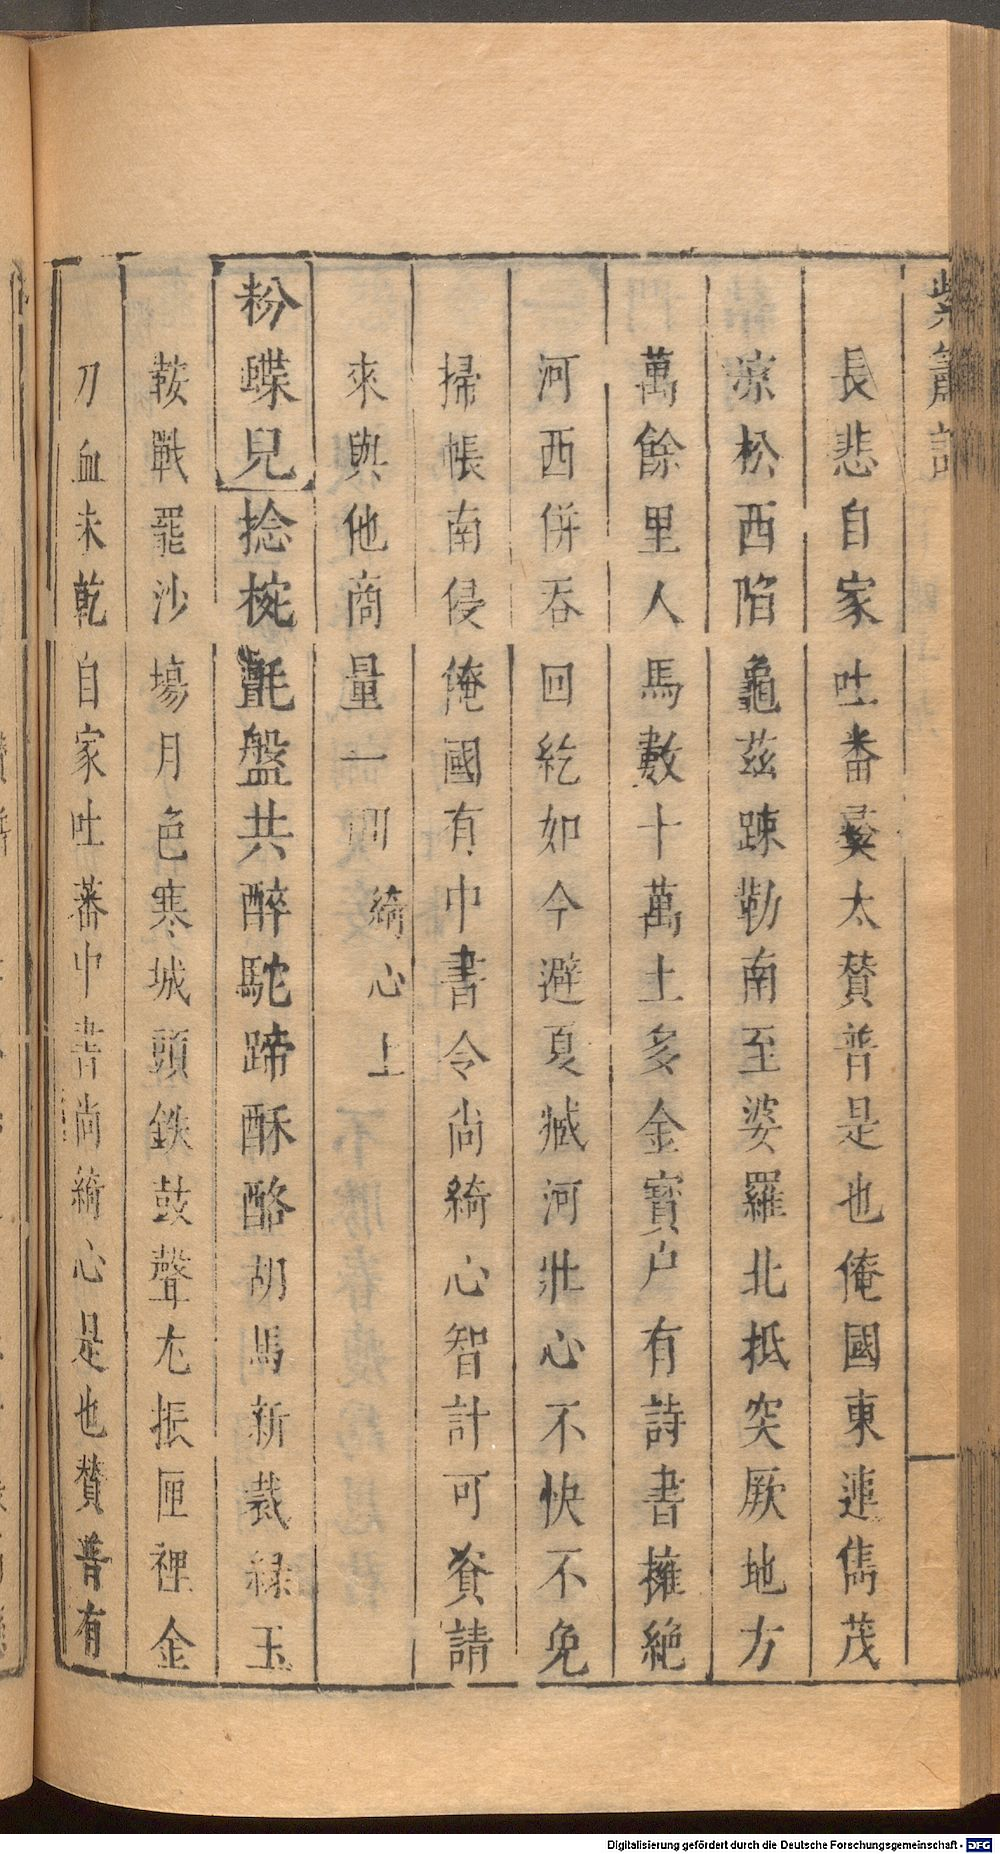 紫簫記
長悲自家吐番燮太贊普是也俺國東連雋茂
凉松西陷龜茲踈勒南至婆羅北抵突厥地方
萬餘里人馬數十萬土多金寳户有詩書擁絶
河西併吞回紇如今避夏臧河壯心不快不免
掃帳南侵俺國有中書令尚綺心智計可資請
來與他商量一回 綺心上
粉蝶兒捻椀氈盤共醉駝蹄酥酪胡馬新裁緑玉
鞍戰罷沙場月色寒城頭鉄鼓聲尢振匣裡金
刀血未乾自家吐蕃中書尚綺心是也贊普有
Digitalisierung gefördert durch die Deutsche Forschungsgemeinschaft - DFG